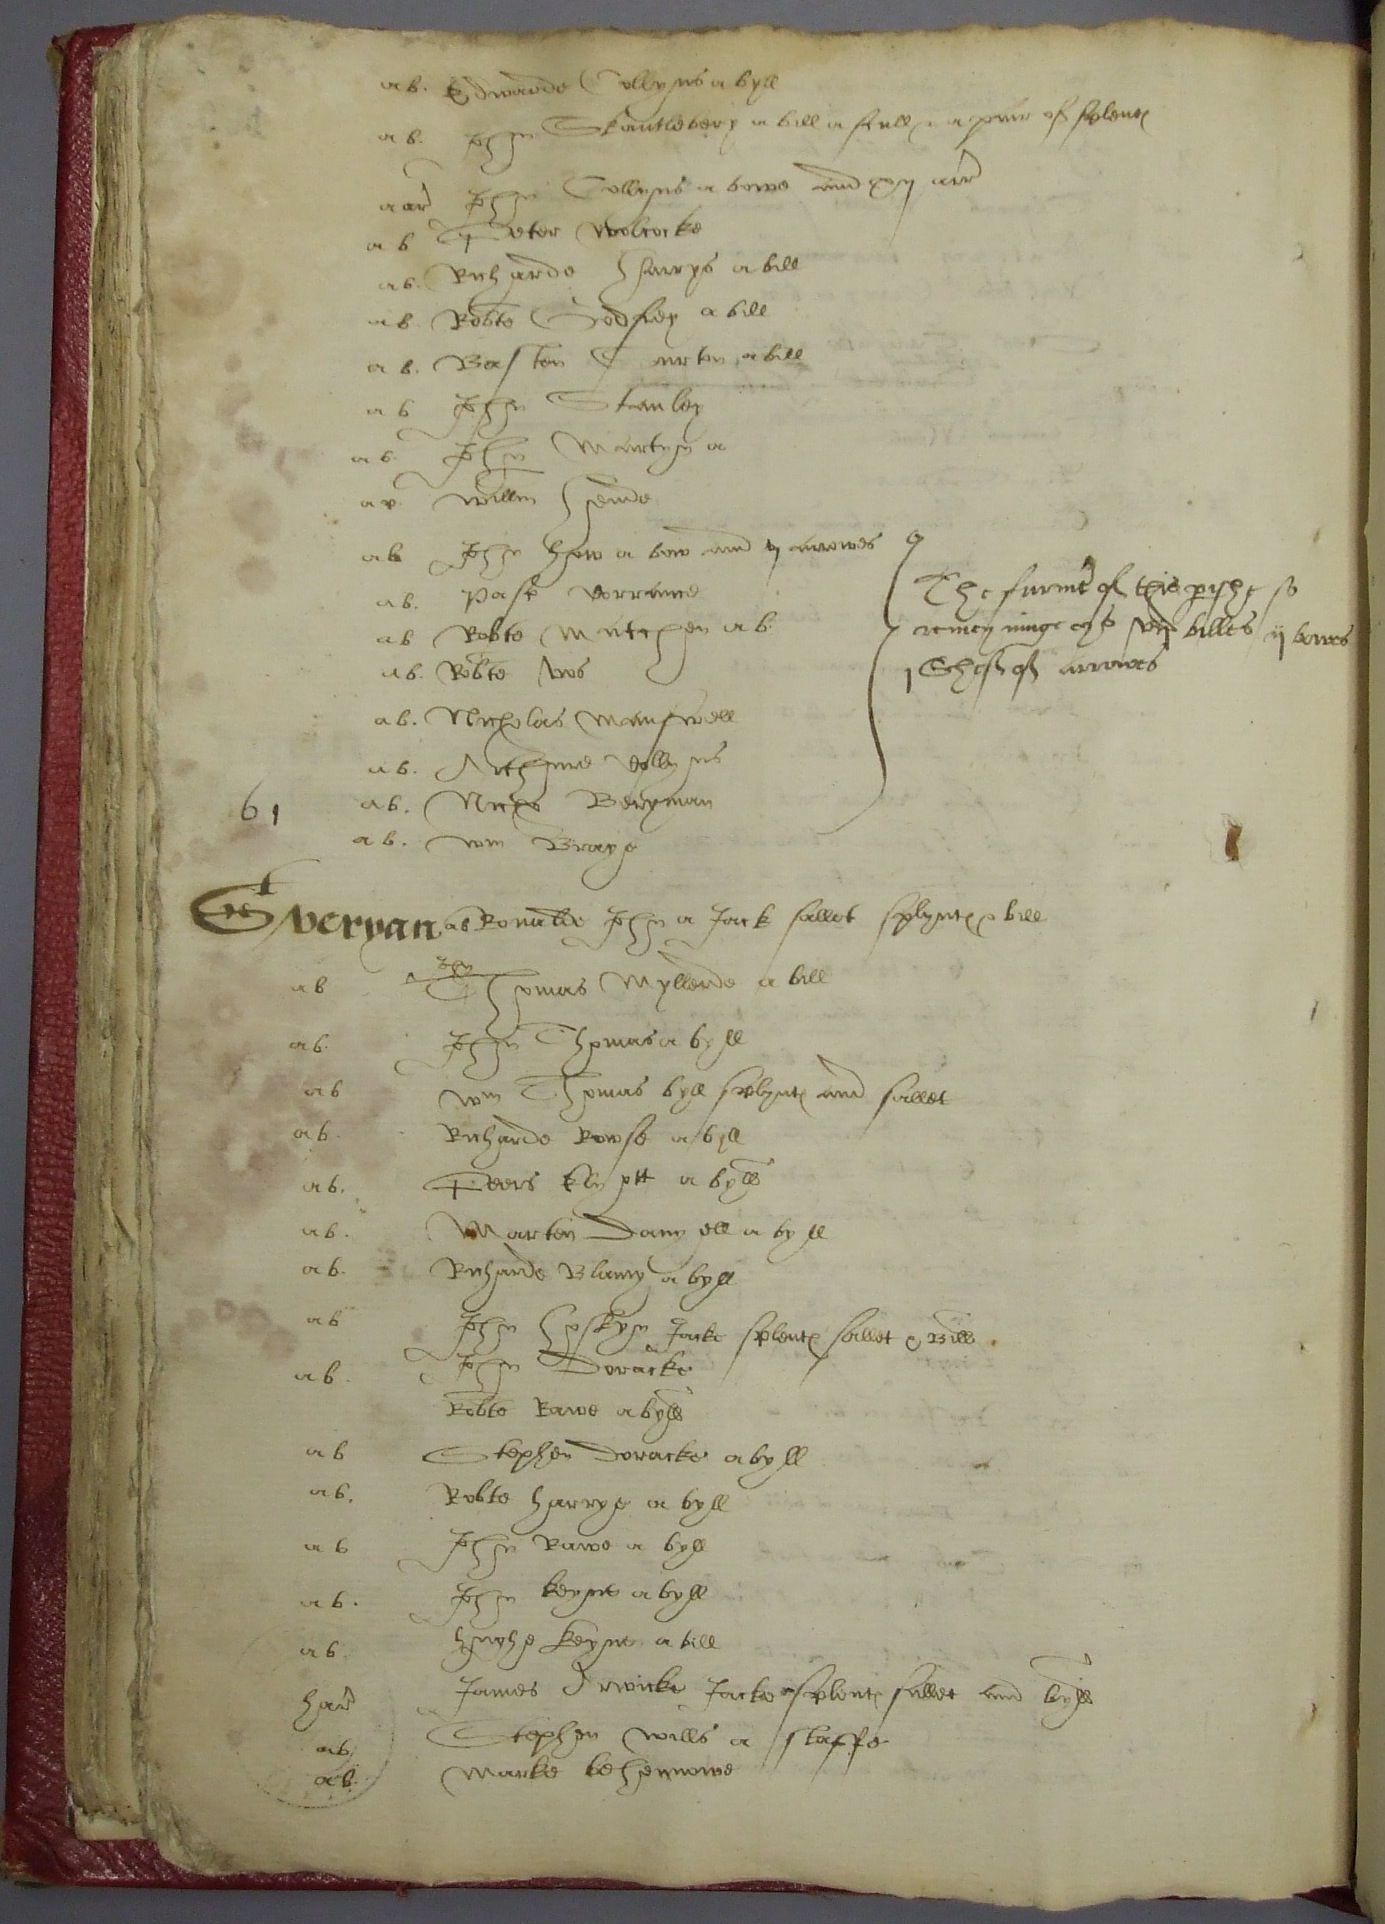 ab. Edwarde Collyns a byll
ab. John Skantlebery a bill a scull & a peire of splente
aar John Collyns a bowe and xij arr
ab Peter Wolcocke
ab. Richarde Harrys a bill
ab. Robte Godfrey a bill
ab. Basten Curten a bill
ab John Stanley
ab John Martyn a
ar Willm Hende
ab John how a bow and vj arrowes
ab. Pasc Vorrance
ab Robte Mutchen ab
ab. Robte
ab. Nicholas Manswell
ab. Collyns
ab. Nichs Beryman
61
ab. Wm Braye
The furnit of this pyshe so
bills ij bowes
1 Shef of arrowes
St Veryan ab Ronalde John a Jack sallet splynte & bill
ab Thomas Myllerde a bill
ab. John Thomas a byll
ab Wm Thomas byll splynte and sallet
ab. Richarde Rowse a byll
ab. Peers a bylle
ab. Marten Danyell a byll
ab. Richarde Blamy a byll
ab John Hoskyn Jacke splente sallet & Bille
ab. John Doracke
Robte Rawe a bylle
ab Stephen Doracke a byll
ab. Robte harrye a byll
ab John Rawe a byll
ab. John keyne a byll
ab. hughe keyne a bill
har James Arwicke Jacke splente sallet and bylle
ab Stephen Wills a staffe
ab. Marke behennowe